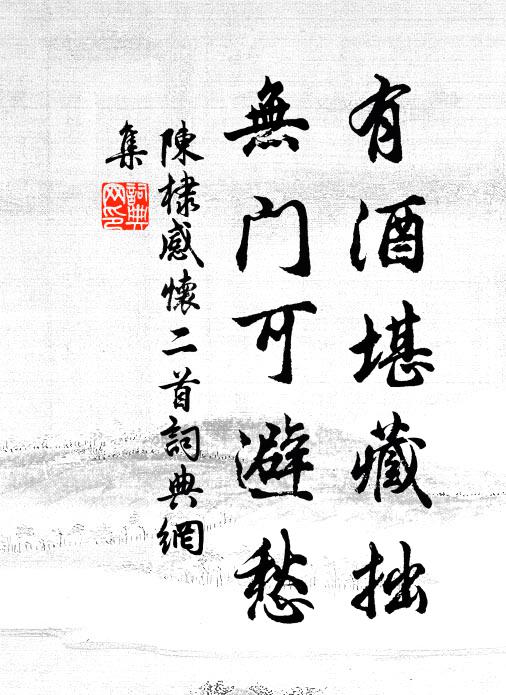 有酒堪藏拙
無門可避愁
陳棣感懷二首詞典網
集
詞典
网印